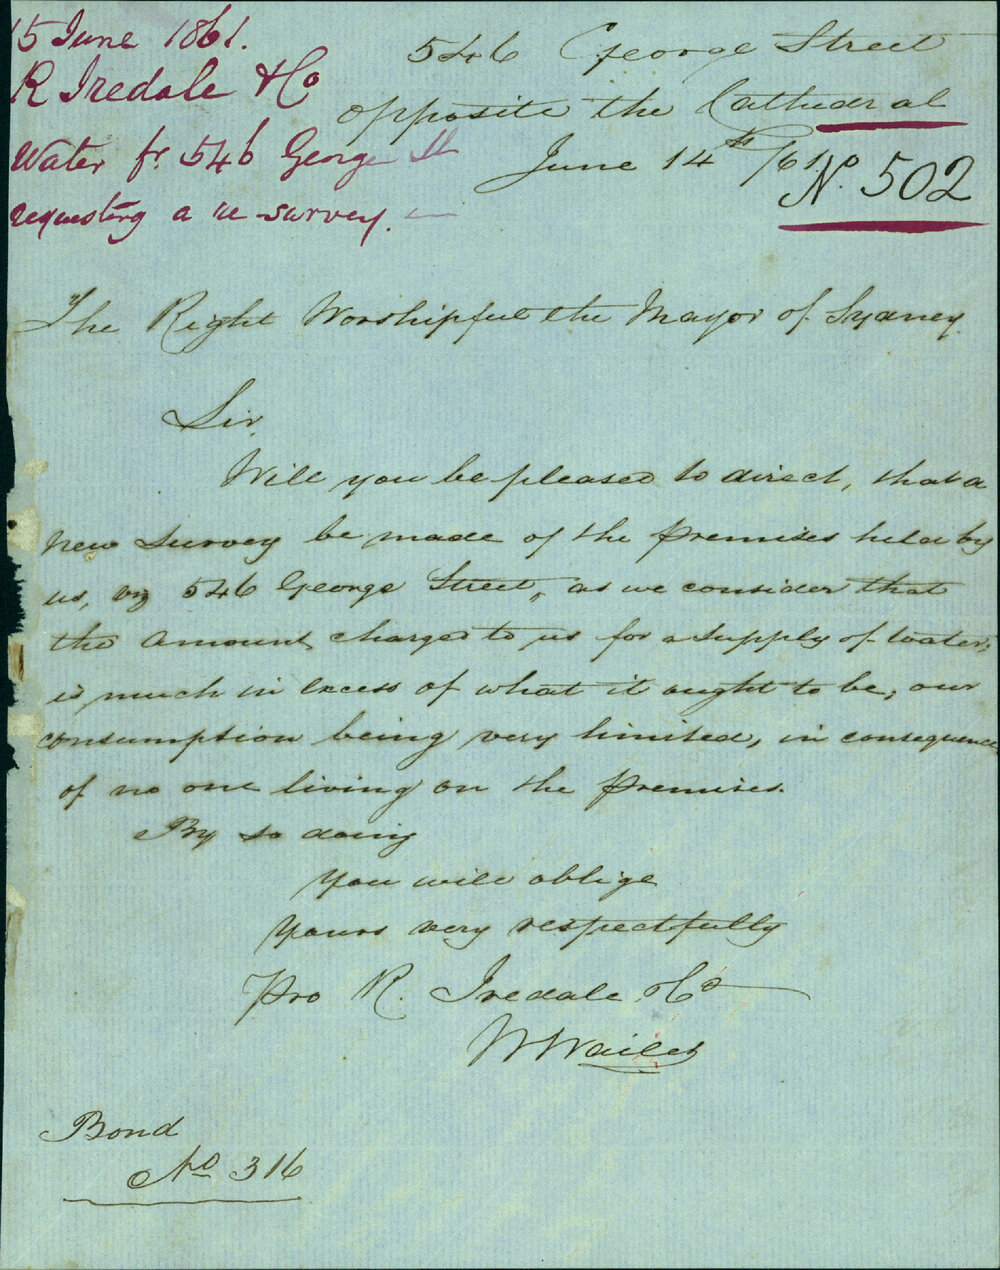 15 June 1861.
R Iredale & Co
Water fr. 546 George St
requesting a re-survey.
546 George Street
opposite the Cathedral
June 14th /61
No. 502
The Right Worshipful the Mayor of Sydney.
Sir,
Will you be pleased to direct, that a
new survey be made of the premises held by
us, viz 546 George Street, as we consider that
the amount charged to us for a supply of water,
is much in excess of what it ought to be, our
consumption being very limited, in consequence
of no one living on the premises.
By so doing
You will oblige
Yours very respectfully
Pro R. Iredale & Co
W Wailes
Bond
No 316